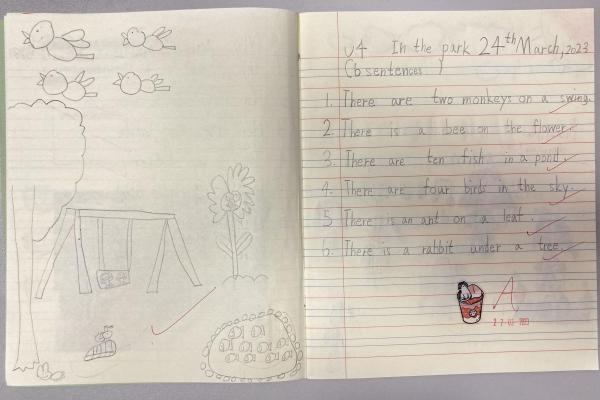 U4 In the park 24th March, 2023
(6 sentences)
1. There are two monkeys on a swing.
2. There is a bee on the flower.
3. There are ten fish in a pond.
4. There are four birds in the sky.
5 There is an ant on a leaf.
6. There is a rabbit under a tree.
A
27.03.2023